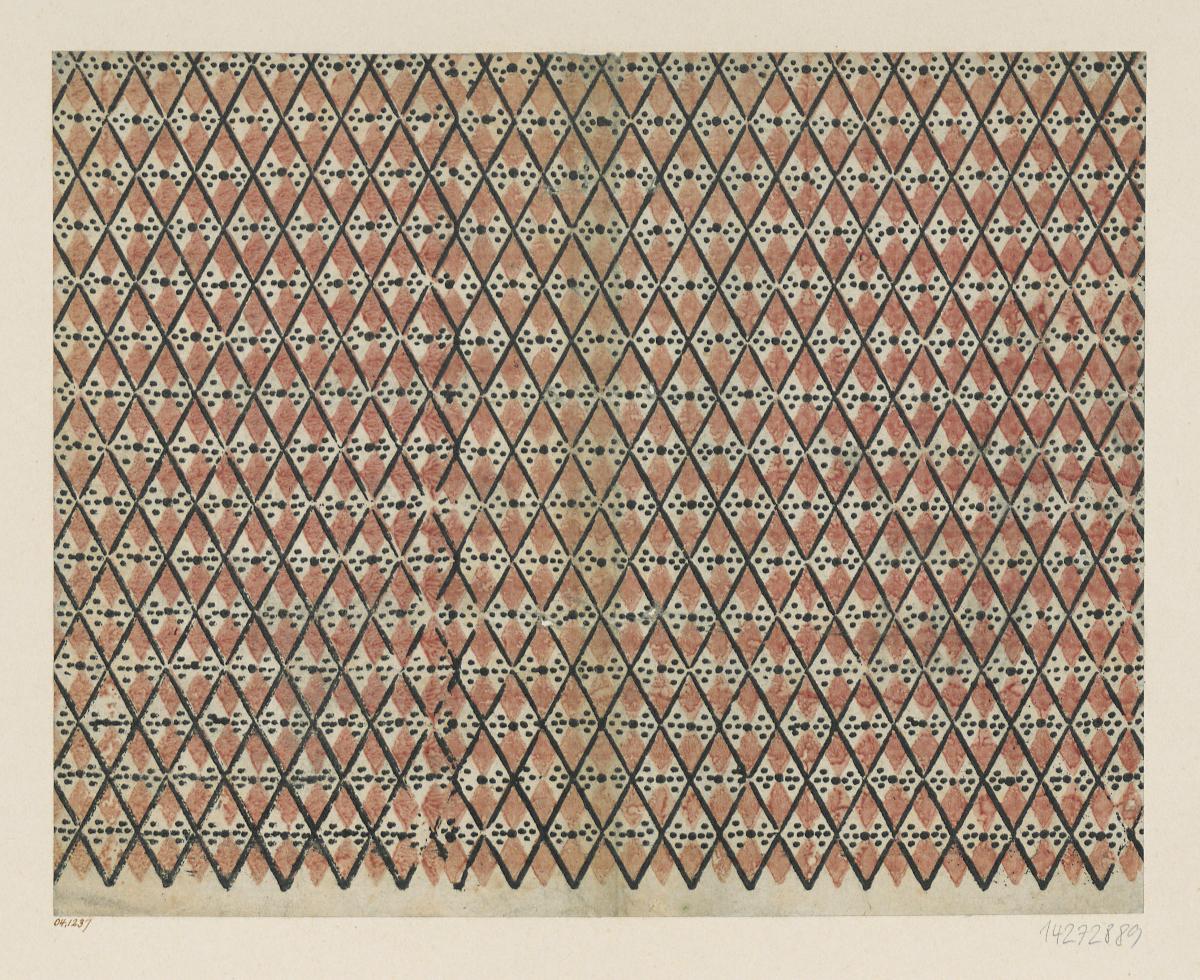 04.1237
14272889